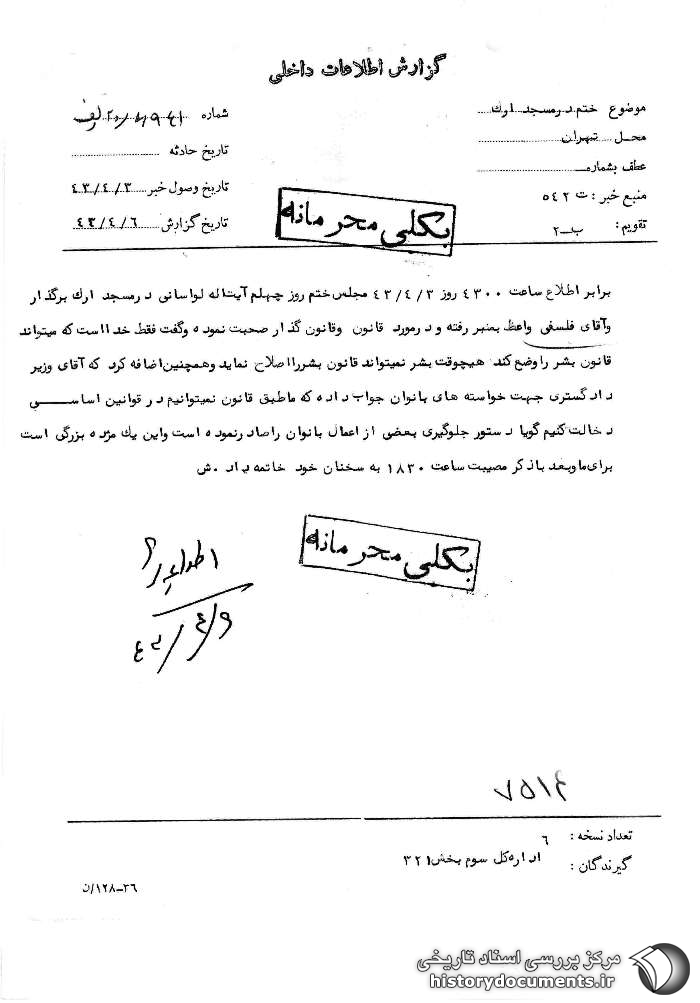 گزارش اطلاعات داخلی
موضوع ختم در مسجد ارك
محل تهران
عطف بشماره
منبع خبر : ت ٥٤٢
تقویم : ب-٢
شماره
تاریخ حادثه
تاریخ وصول خبر ٤٣/٤/٣
تاریخ گزارش ٤٣/٤/٦
بکلی محرمانه
برابر اطلاع ساعت ٤٣٠٠ روز ٤٣/٤/٣ مجلس ختم روز چهلم آیت‌اله لواسانی در مسجد ارك برگذار
وآقای فلسفی واعظ بمنبر رفته و در مورد قانون وقانون گذار صحبت نموده وگفت فقط خدا است که میتواند
قانون بشر را وضع کند هیچوقت بشر نمیتواند قانون بشر را اصلاح نماید وهمچنین اضافه کرد که آقای وزیر
دادگستری جهت خواسته های بانوان جواب داده که ما طبق قانون نمیتوانیم در قوانین اساســـی
دخالت کنیم گویا دستور جلوگیری بعضی از اعمال بانوان را صادر نموده است واین یك مژده بزرگی است
برای ما وبعد با ذکر مصیبت ساعت ١٨٣٠ به سخنان خود خاتمه داد .ش
بکلی محرمانه
٤٣/٤/٩
تعداد نسخه : ٦
گیرندگان : اداره کل سوم بخش ٣٢١
٣٦-١٢٨/ن
مرکز بررسی اسناد تاریخی
historydocuments.ir